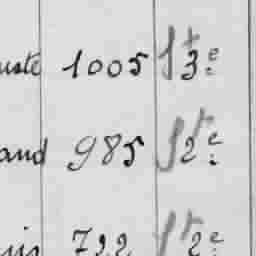 uste 1005 St 3e
and 985 St 2e
uis 722 St 2e